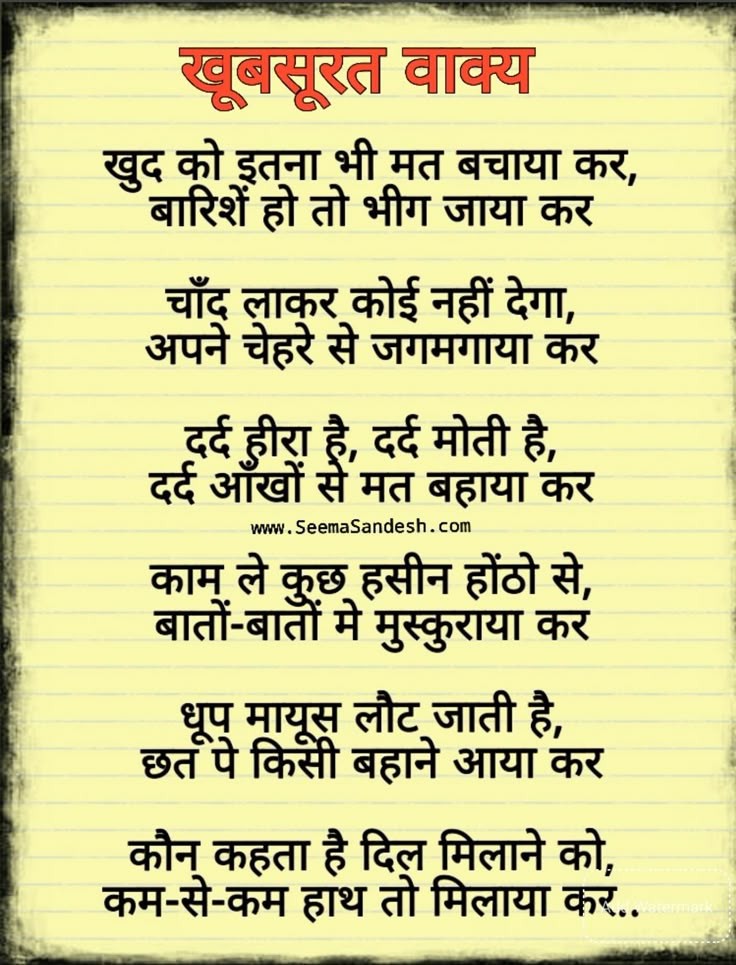 खूबसूरत वाक्य
खुद को इतना भी मत बचाया कर,
बारिशें हो तो भीग जाया कर
चाँद लाकर कोई नहीं देगा,
अपने चेहरे से जगमगाया कर
दर्द हीरा है, दर्द मोती है,
दर्द आँखों से मत बहाया कर
www.SeemaSandesh.com
काम ले कुछ हसीन होंठो से,
बातों-बातों मे मुस्कुराया कर
धूप मायूस लौट जाती है,
छत पे किसी बहाने आया कर
कौन कहता है दिल मिलाने को,
कम-से-कम हाथ तो मिलाया कर..
Add Watermark